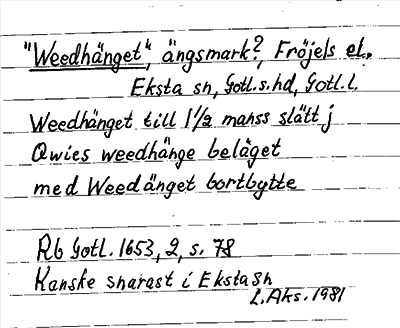 "Weedhänget", ängsmark?, Fröjels el.
Eksta sn, Gotl.s.hd, Gotl.l.
Weedhänget till 1 1/2 manss slätt j
Qwies weedhänge beläget
med Weedänget bortbytte
Rb Gotl. 1653, 2, s. 78
Kanske snarast i Eksta sn
L.Aks. 1981